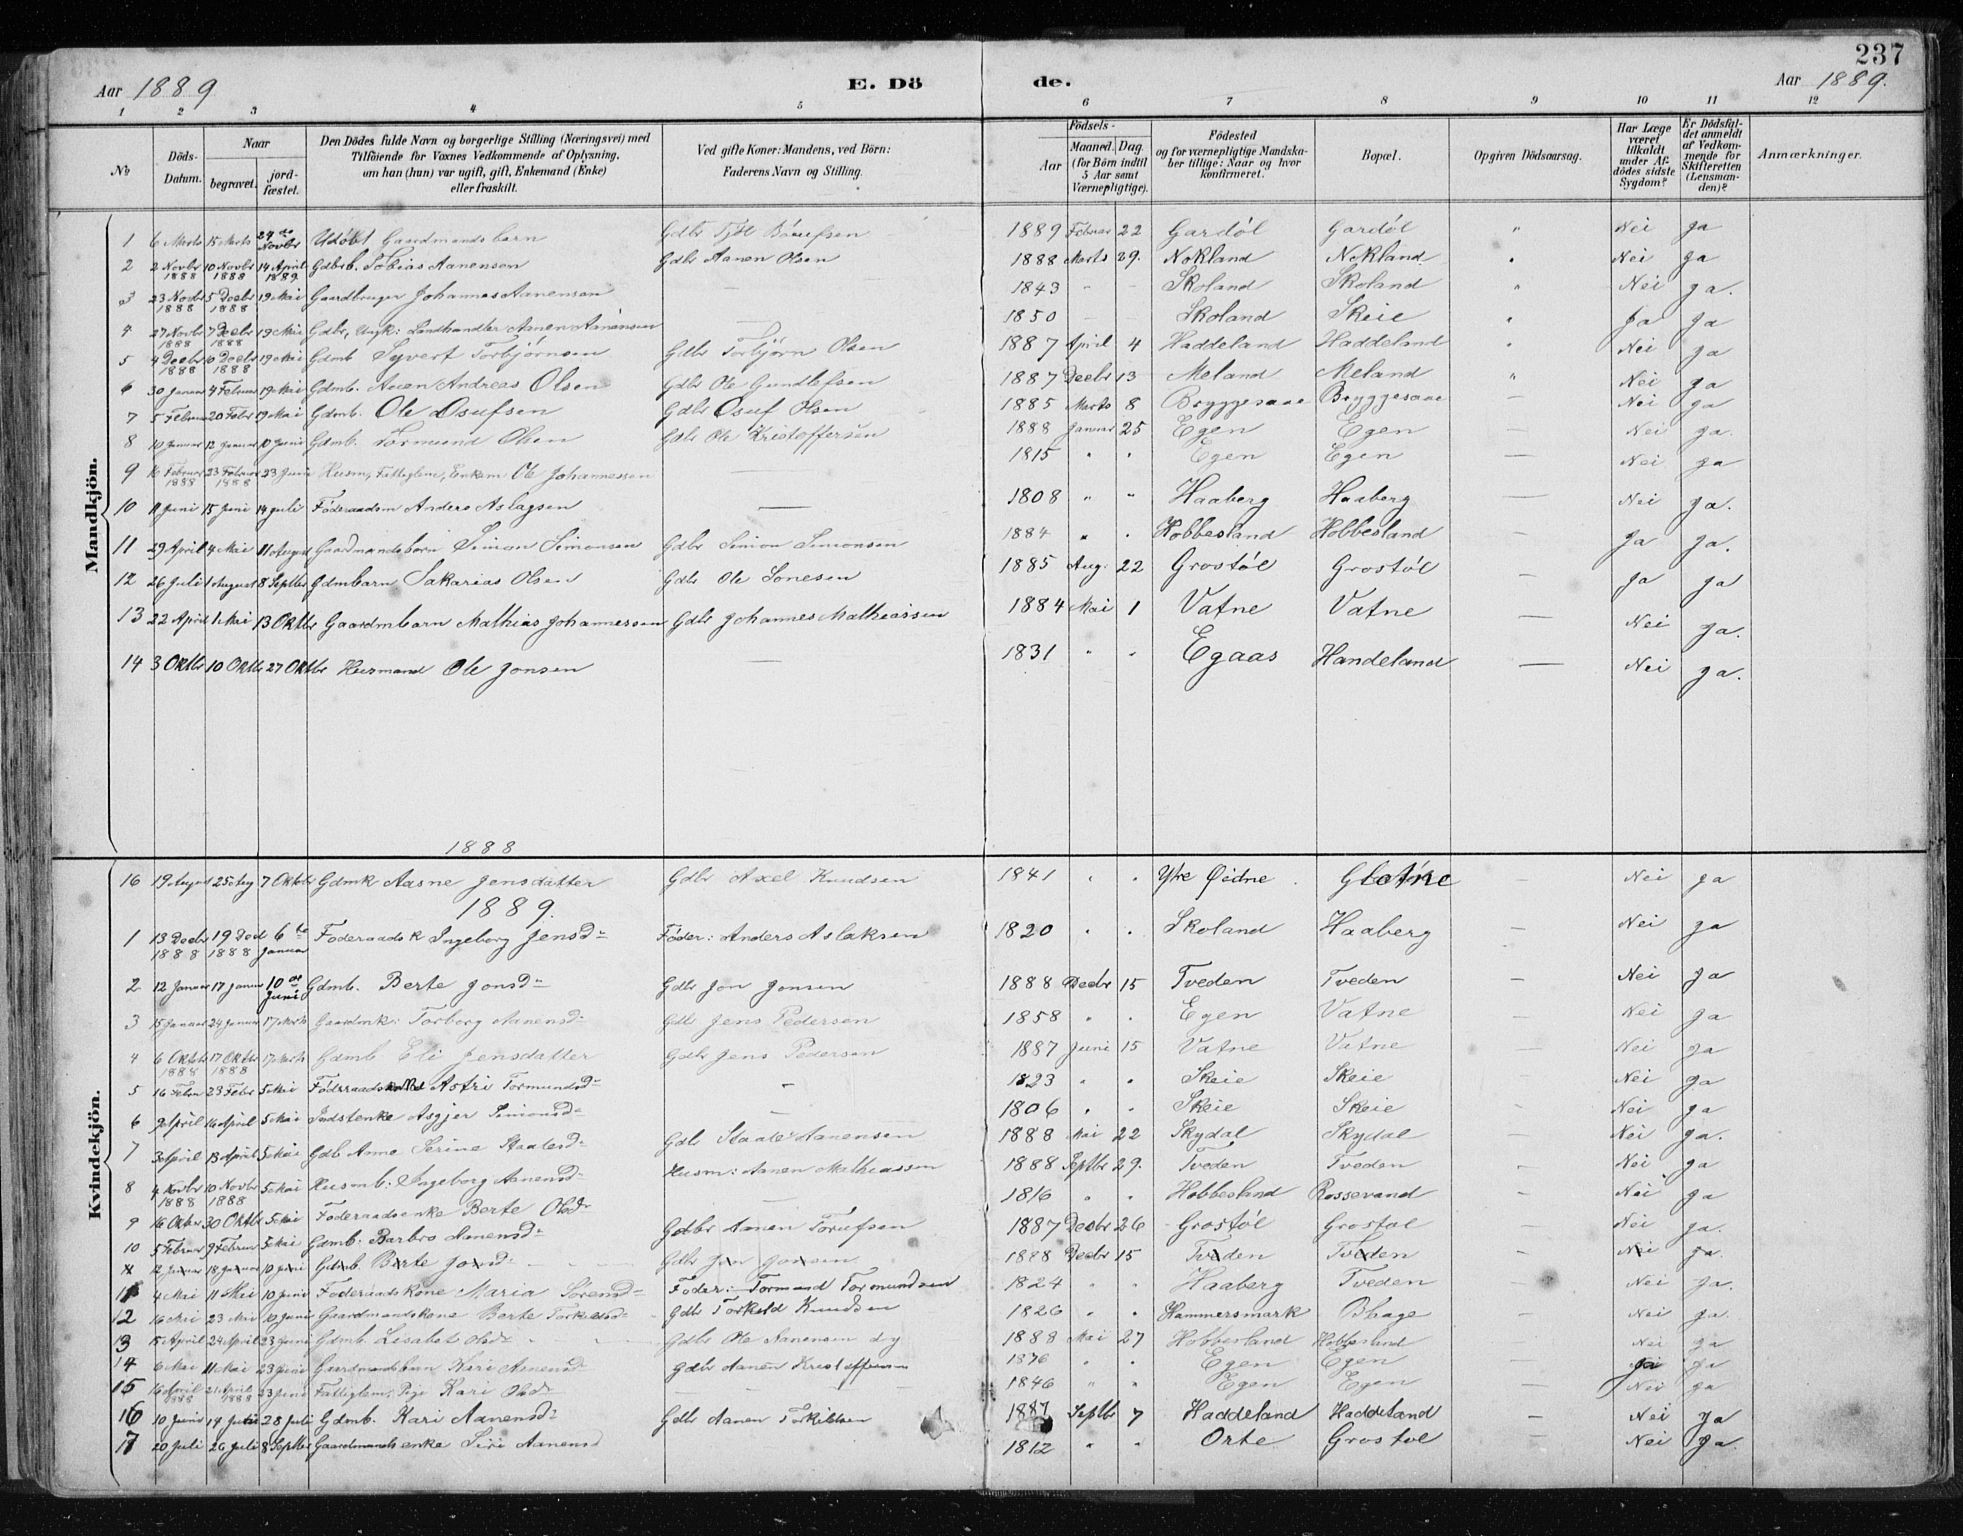 237
Aar 1889 E. Dö de. Aar 1889.
1 2 3 4 5 6 7 8 9 10 11 12
No
Döds-Datum.
Naar
begravet.
jord-fæstet.
Den Dödes fulde Navn og borgerlige Stilling (Næringsvei) med Tilföiende for Voxnes Vedkommende af Oplysning, om han (hun) var ugift, gift, Enkemand (Enke) eller fraskilt.
Ved gifte Koner: Mandens, ved Börn: Faderens Navn og Stilling.
Födsels-
Aar
Maaned. Dag.
(for Börn indtil 5 Aar samt Værnepligtige).
Födested og for værnepligtige Mandskaber tillige: Naar og hvor konfirmeret.
Bopæl.
Opgiven Dödsaarsag.
Har Læge været tilkaldt under Afdödes sidste Sygdom?
Er Dödsfaldet anmeldt af Vedkommende for Skifteretten (Lensmanden)?
Anmærkninger.
Mandkjön.
1 6 Marts 15 Marts 24de Novbr Udöbt Gaardmandsbarn Gdbr 1889 Februar 22 Gardöl Gardöl " Nei ja
2 2 Novbr 1888 10 Novbr 1888 14 April 1889 Gdbrb. Tobias Aanensen Gdbr Aanen Olsen 1888 Marts 29. Nokland Nokland " Nei ja
3 23 Novbr 1888 5 Decbr 1888 19 Mai Gaardbruger Johannes Aanensen — 1843 - - Skoland Skoland " Nei ja.
4 27 Novbr 1888 7 Decbr 1888 19 Mai Gdbr, Ungk: Landhandler Aanen Aanensen — 1850 - - Skoland Skeie " ja ja
5 4 Decbr 1888 10 Decbr 1888 19 Mai Gdmb Syvert Torbjörnsen Gdbr Torbjörn Olsen 1887 April 4 Haddeland Haddeland " Nei ja
6 30 Januar 4 Februar 19 Mai Gdmb. Anen Andreas Olsen Gdbr Ole Gundlefsen 1887 Decbr 13 Meland Meland " Nei ja
7 5 Februar 20 Febr 19 Mai Gdmb. Ole Osufsen Gdbr Osuf Olsen 1885 Marts 8 Bryggesaae Bryggesaae — Nei ja
8 10 Januar 12 Januar 10 Juni Gdmb. Tormund Olsen Gdbr Ole Kristoffersen 1888 Januar 25 Egen Egen — Nei ja.
9 16 Februar 1888 23 Februar 1888 23 Juni Husm, Fattiglem, Enkem Ole Johannessen — 1815 " " Egen Egen — Nei ja
10 11 Juni 15 Juni 14 Juli Föderaadsm Anders Aslagsen — 1808 " " Haaberg Haaberg — Nei ja.
11 29 April 4 Mai 11 August Gaardmandsbarn Simon Simonsen Gdbr Simon Simonsen 1884 " " Hobbesland Hobbesland — ja ja.
12 26 Juli 1 August 8 Septbr Gdmbarn Sakarias Olsen Gdbr Ole Sonesen 1885 Aug. 22 Grostöl Grostöl — ja ja
13 22 April 1 Mai 13 Oktbr Gaardmbarn Mathias Johannessen Gdbr Johannes Mathiassen 1884 Mai 1 Vatne Vatne — Nei ja.
14 3 Oktbr 10 Oktbr 27 Oktbr Husmand Ole Jonsen — 1831 " " Egaas Handeland — Nei ja.
Kvindekjön.
1888
16 19 August 25 Aug 7 Oktbr Gdmk Aasne Jensdatter Gdbr Axel Knudsen 1841 " " Ytre Öidne Nei ja
1889.
1 13 Decbr 1888 19 Decb 1888 6te Januar Föderaadsk Ingeborg Jensd Föder: Anders Aslaksen 1820 " " Skoland Haaberg — Nei ja
2 12 Januar 17 Januar 10de Juni Gdmb. Berte Jonsd Gdbr Jon Jonsen 1888 Decbr 15 Tveden Tveden — Nei ja
3 15 Januar 24 Januar 17 Marts Gaardmk: Torborg Aanensd Gdbr Jens Pedersen 1858 " " Egen Vatne — Nei ja
4 6 Oktbr 1888 17 Oktbr 1888 17 Marts Gdmb Eli Jensdatter Gdbr Jens Pedersen 1887 Juni 15 Vatne Vatne — Nei ja
5 16 Febru 23 Febr 5 Mai Föderaads Astri Tormundsd - 1823 " " Skeie Skeie — Nei ja
6 9 April 16 April 5 Mai Indstenke Asgjer Simonsd - 1806 " " Skeie Skeie — Nei ja
7 3 April 13 April 5 Mai Gdb Anne Serine Staalesd Gdbr Staale Aanensen 1888 Mai 22 Skydal Skydal — Nei ja.
8 4 Novbr 1888 10 Novbr 1888 5 Mai Husmb: Ingeborg Aanensd Husm: Aanen Mathiassen 1888 Septbr 29. Tveden Tveden — Nei ja
9 16 Oktbr 30 Oktbr 5 Mai Föderaadsenke Berte Olsd — 1816 " " Hobbesland Rossevand - Nei ja
10 5 Februar 9 Februar 5 Mai Gdmb: Berbro Aanensd Gdbr Aanen Torufsen 1887 Decbr 26 Grostöl Grostöl - Nei ja.
12 Januar 18 Januar 10 Juni Gdmb. Berte Jonsd Gdbr Jon Jonsen 1888 Decbr 15 Tveden Tveden Nei ja
11 4 Mai 11 Mai 10 Juni Föderaadskone Maria Sörensd Föder: Tormund Tormundsen 1824 " " Haaberg Tveden - Nei ja.
12 16 Mai 23 Mai 10 Juni Gaardmandskone Berte Torkelsd Gdbr Torkild Knudsen 1826 " " Hammersmark Bhage - Nei ja.
13 15 April 24 April 23 Juni Gdmb. Lisabet Olsd Gdbr Ole Aanensen dy 1888 Mai 27 Hobbesland Hobbesland — Nei ja
14 6 Mai 11 Mai 23 Juni Gaardmandsbarn Kari Aanensd Gdbr Aanen Kristoffersen 1876 " " Egen Egen — ja ja
15 16 April 1888 21 April 1888 23 Juni Fattiglem, Pige Kari Olsd — 1846 " " Egen Egen — Nei ja
16 10 Juni 14 Juni 28 Juli Gdmb. Kari Aanensd Gdbr Aanen Torkildsen 1887 Septbr 7 Haddeland Haddeland — Nei ja
17 20 Juli 26 Juli 8 Septbr Gaardmandsenke Siri Aanensd 1812 " " Orte Grostöl — Nei ja